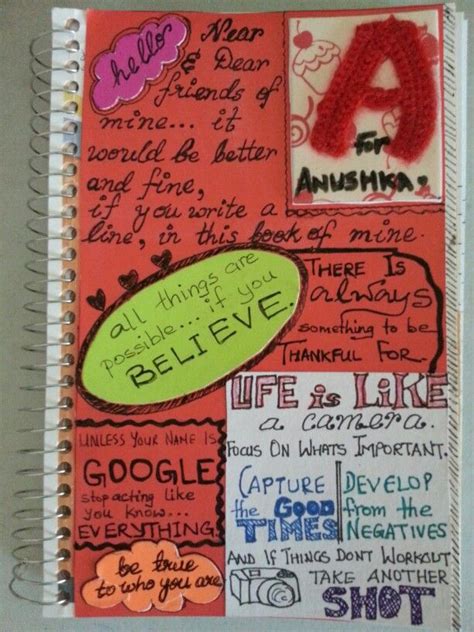 hello
Near
& Dear
friends of
mine... it
would be better
and fine,
if you write a
line, in this book of mine.
A
FOR
ANUSHKA.
all things are
possible... if you
BELIEVE.
THERE IS
always
something to be
THANKFUL FOR.
UNLESS YOUR NAME IS
GOOGLE
stop acting like
you know...
EVERYTHING.
be true
to who you are
LIFE is LIKE
a camera.
FOCUS ON WHATS IMPORTANT.
CAPTURE
the GOOD
TIMES
DEVELOP
from the
NEGATIVES
AND IF THINGS DONT WORKOUT
TAKE ANOTHER
SHOT